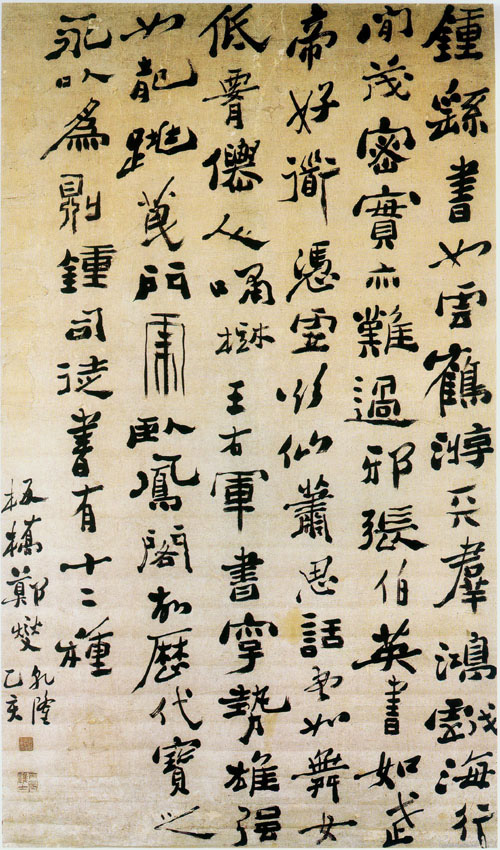 鍾繇書如雲鶴游天羣鴻戲海行
間茂密實亦難過邪張伯英書如武
帝好道憑虛欲仙蕭思話書如舞女
低腰僊人嘯樹王右軍書字勢雄强
如龍跳天門虎臥鳳閣故歷代寶之
永以為訓鍾司徒書有十二種
板橋鄭燮
乾隆
乙亥